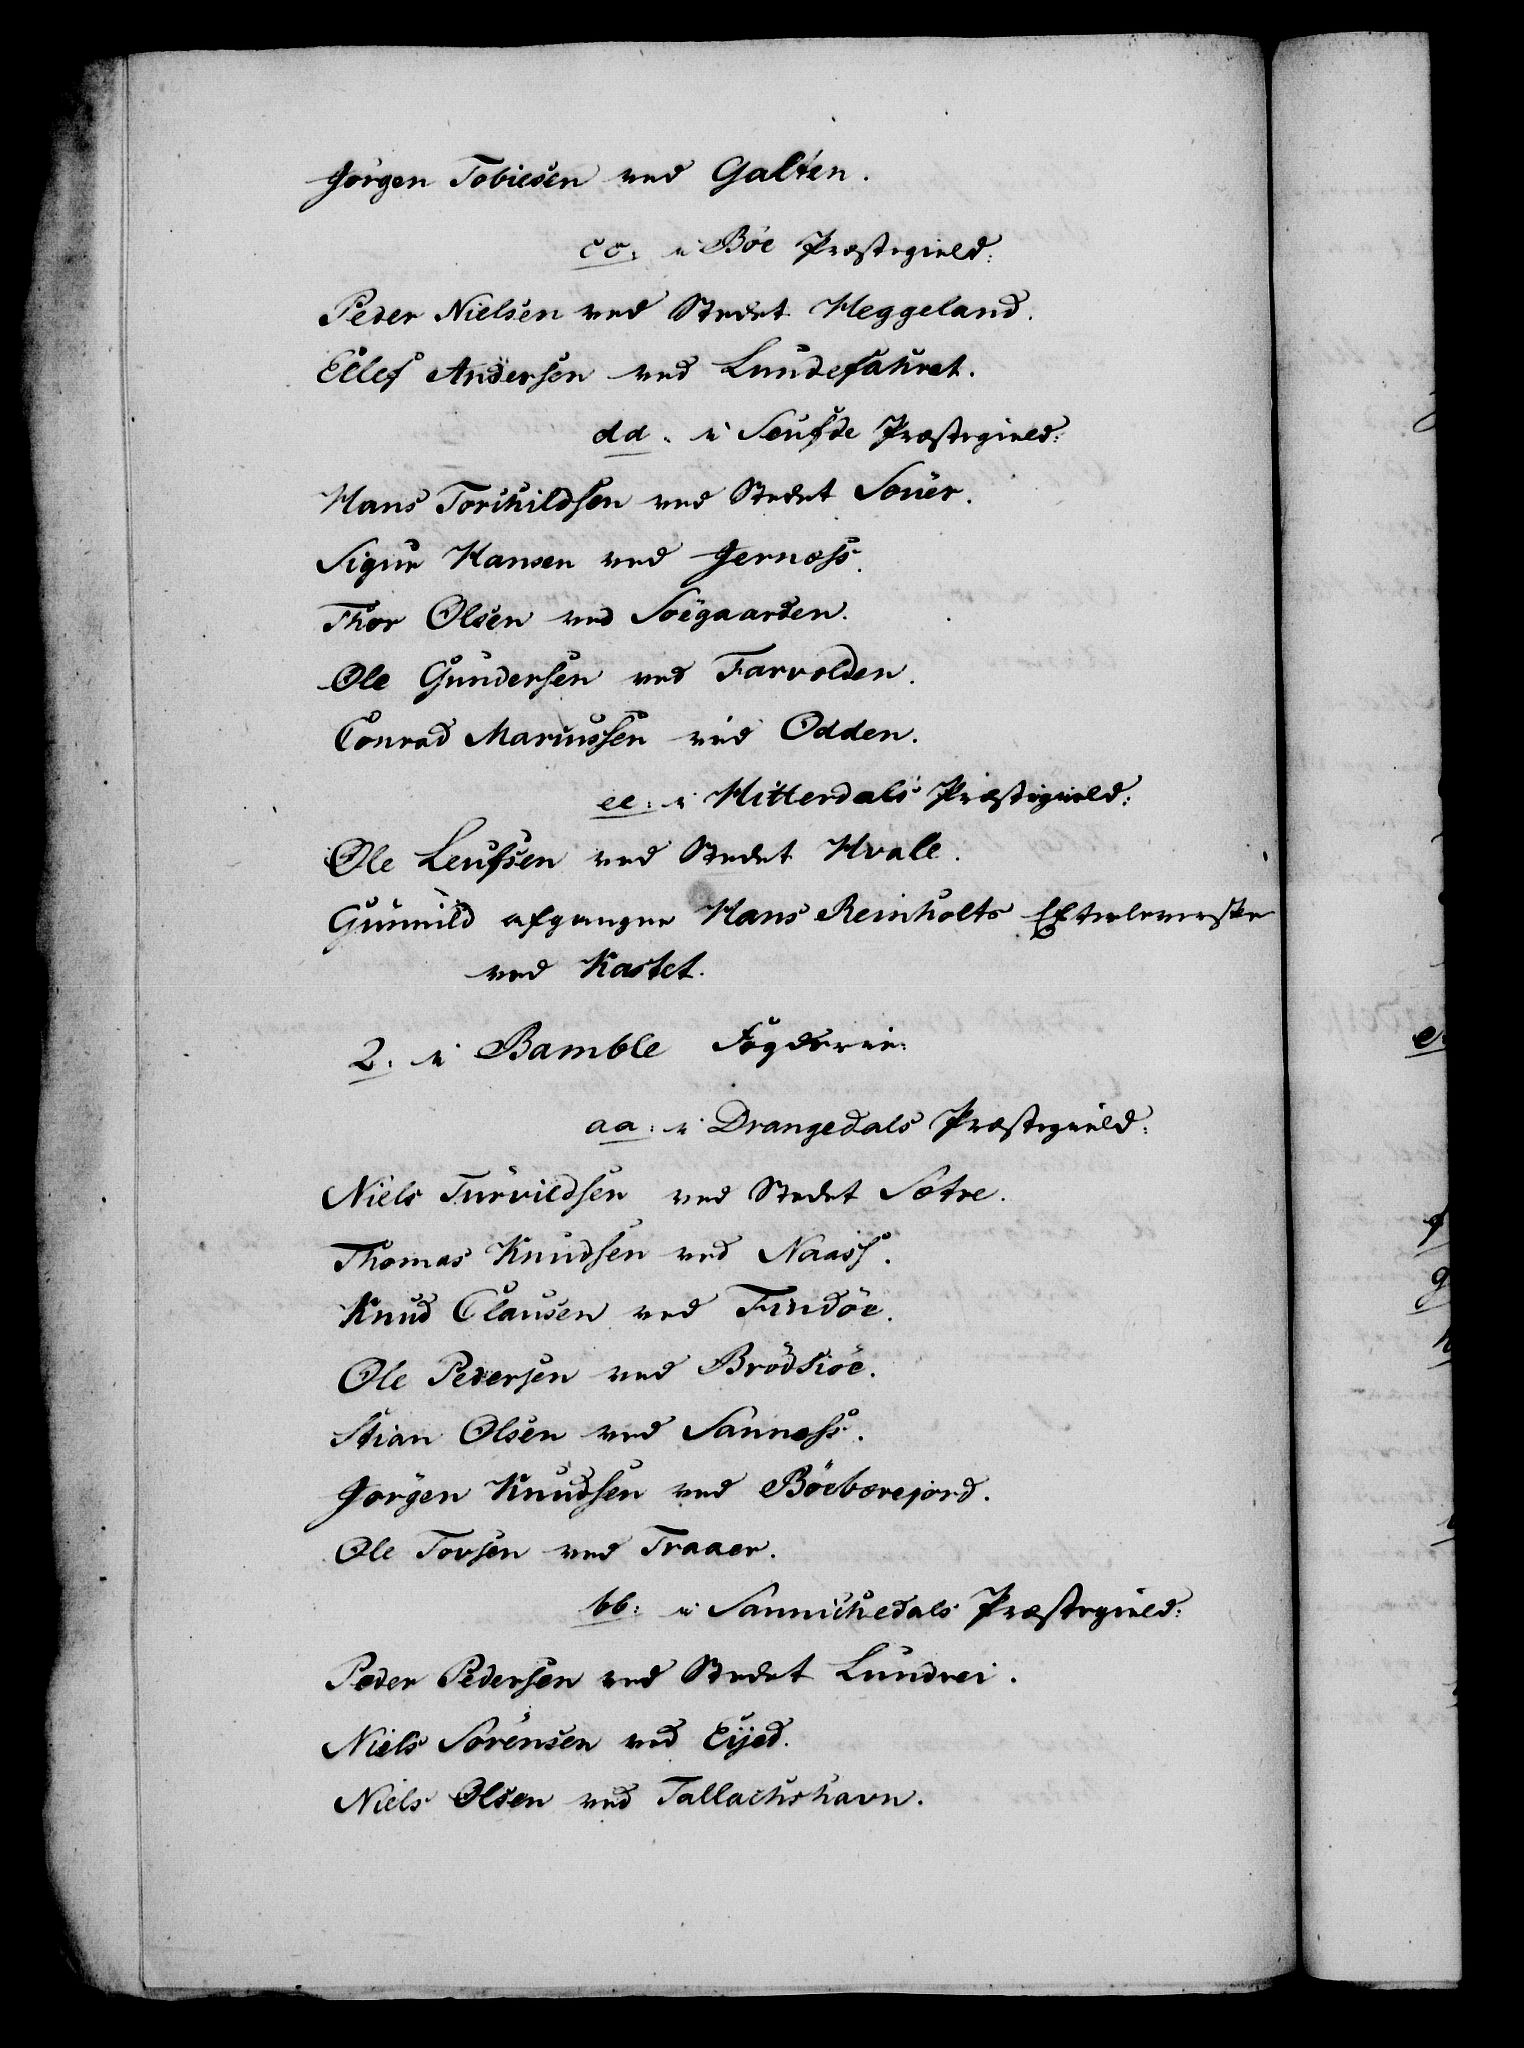 Jörgen Tobiesen ved Galten.
cc. i Böe Præstegield:
Peder Nielsen ved Stedet Heggeland.
Ellef Andersen ved Lundefahret.
dd. i Seufde Præstegield:
Hans Torchildsen ved Stedet Souer.
Sigur Hansen ved Jernæss.
Thor Olsen ved Soëgaarden.
Ole Gundersen ved Farvolden.
Conrad Mariussen ved Odden.
ee: i Hitterdals Præstegield:
Ole Leufsen ved Stedet Hvale.
Gunnild afgangne Hans Reinholts Efterleverske
ved Kastet.
2. i Bamble Fögderie:
aa: i Drangedals Præstegield:
Niels Turvildsen ved Stedet Sætre.
Thomas Knudsen ved Naass.
Knud Clausen ved Findöe.
Ole Pedersen ved Brödsiöe.
Stian Olsen ved Sannæss.
Jörgen Knudsen ved Böebærejord.
Ole Torsen ved Traaer.
bb: i Sannichedals Præstegield:
Peder Pedersen ved Stedet Lundrei.
Niels Sörensen ved Eijed.
Niels Olsen ved Tallachshavn.